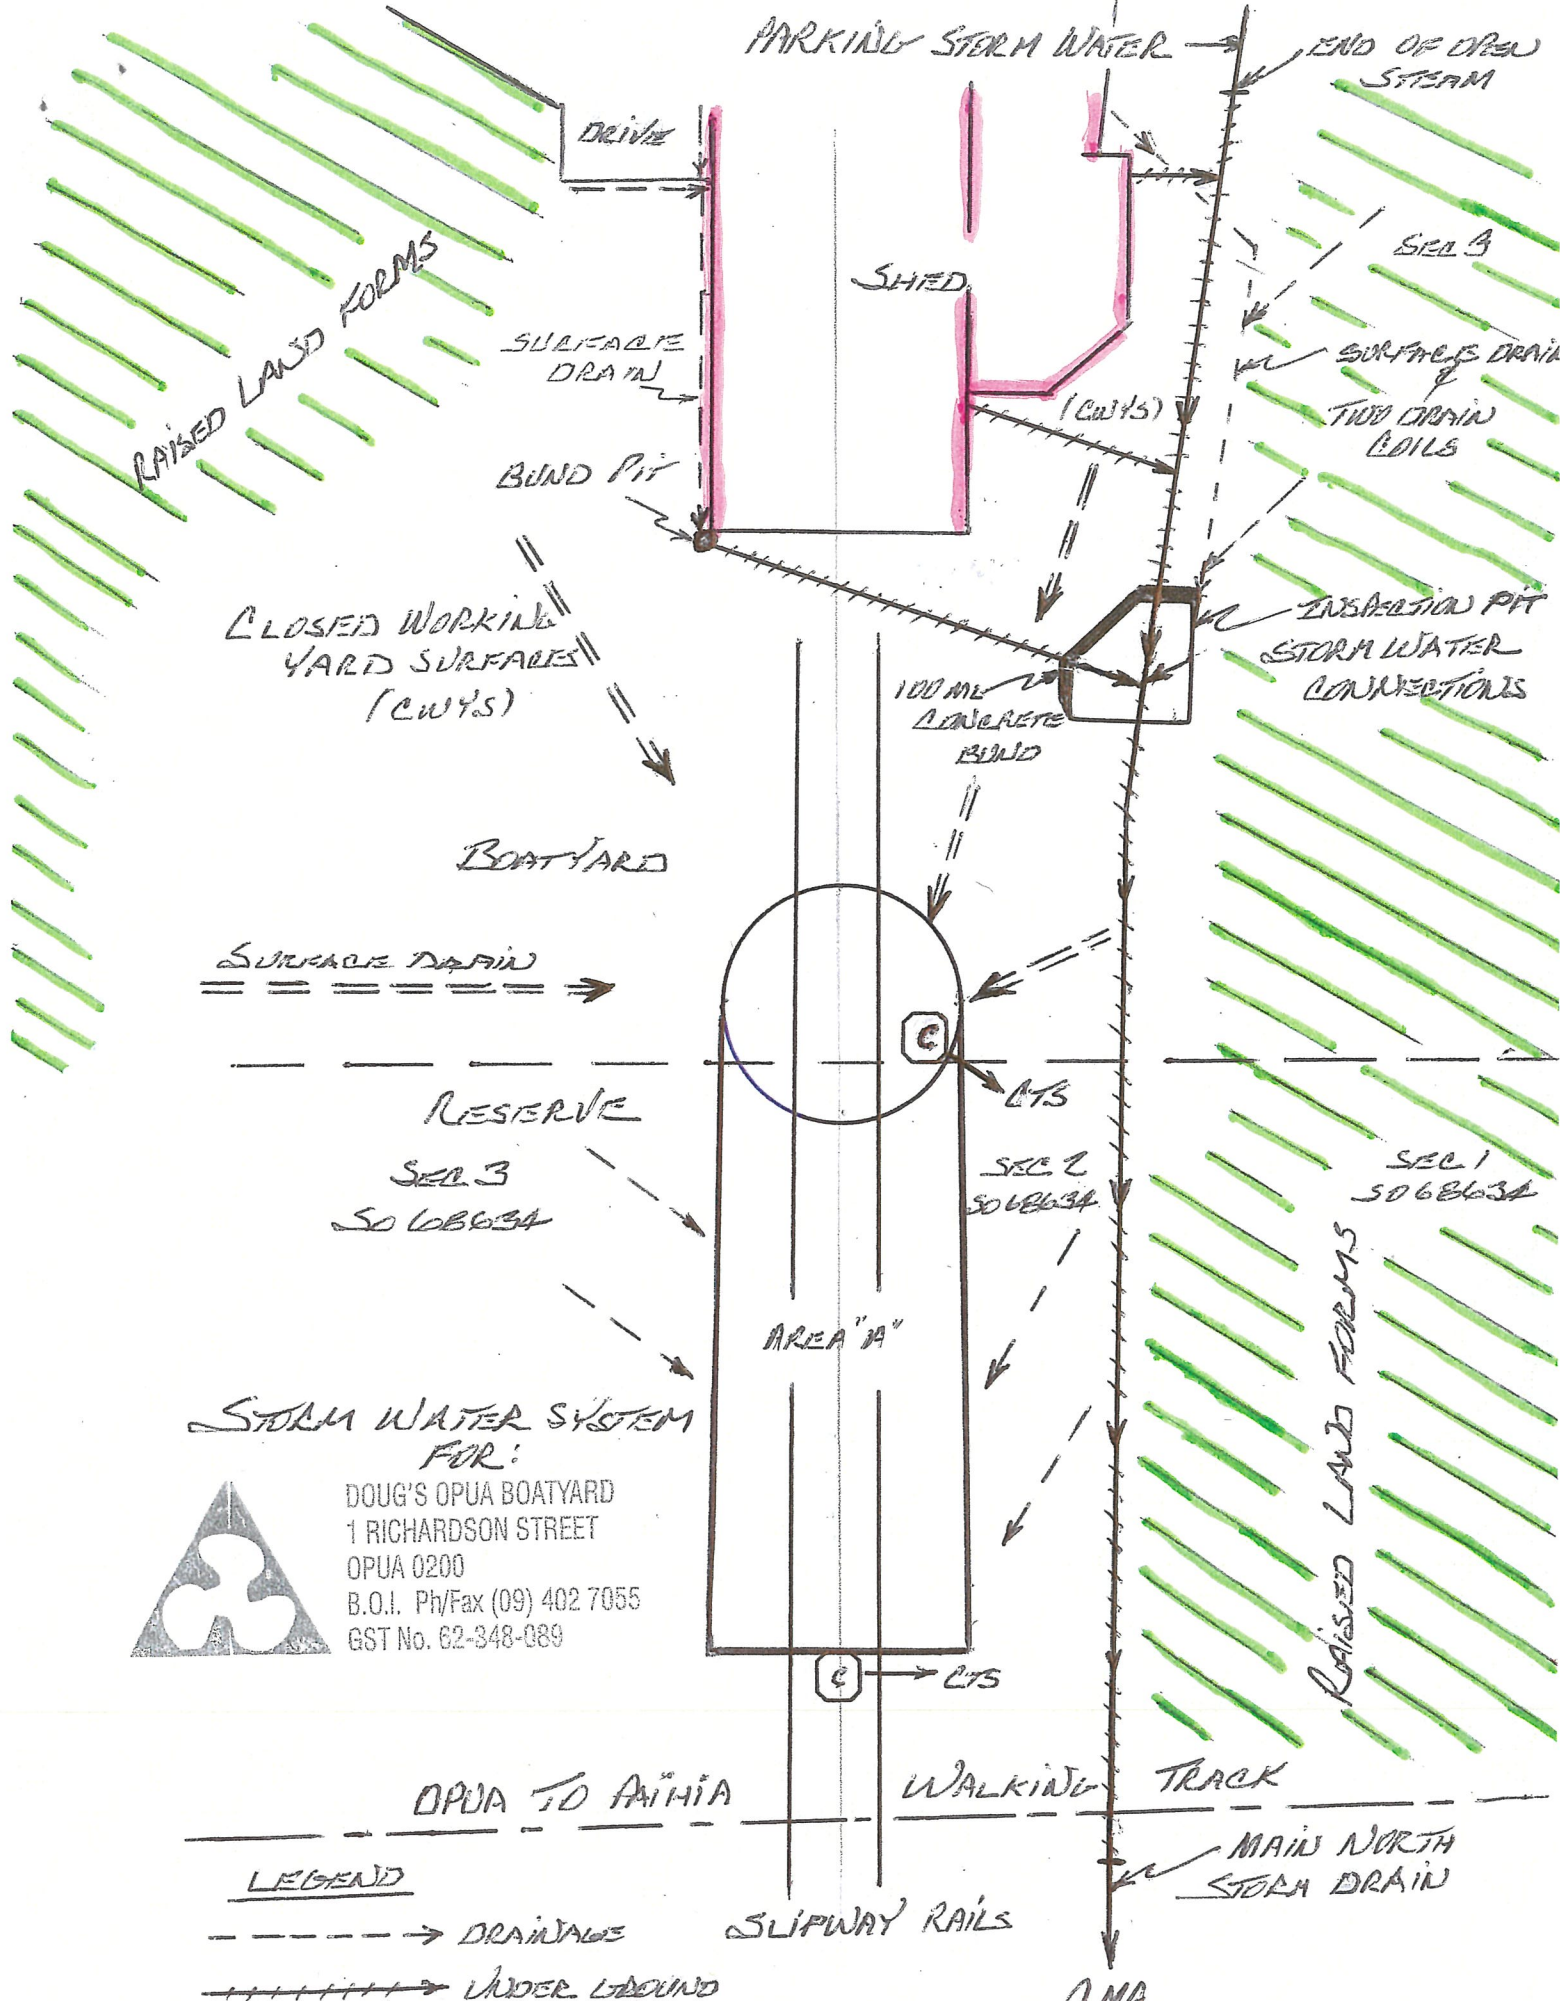 PARKING STORM WATER
END OF OPEN
STEAM
DRIVE
SHED
SEC 3
RAISED LAND FORMS
SURFACE
DRAIN
SURFACE DRAIN
&
TWO DRAIN
COILS
(CWYS)
BUND PIT
CLOSED WORKING
YARD SURFACES
(CWYS)
INSPECTION PIT
STORM WATER
CONNECTIONS
100 ML
CONCRETE
BUND
BOATYARD
SURFACE DRAIN
C
CTS
RESERVE
SEC 3
SO 68634
SEC 2
SO 68634
SEC 1
SO 68634
AREA "A"
RAISED LAND FORMS
STORM WATER SYSTEM
FOR:
DOUG'S OPUA BOATYARD
1 RICHARDSON STREET
OPUA 0200
B.O.I. Ph/Fax (09) 402 7055
GST No. 62-348-089
C
CTS
OPUA TO PAIHIA WALKING TRACK
MAIN NORTH
STORM DRAIN
LEGEND
DRAINAGE
UNDER GROUND
SLIPWAY RAILS